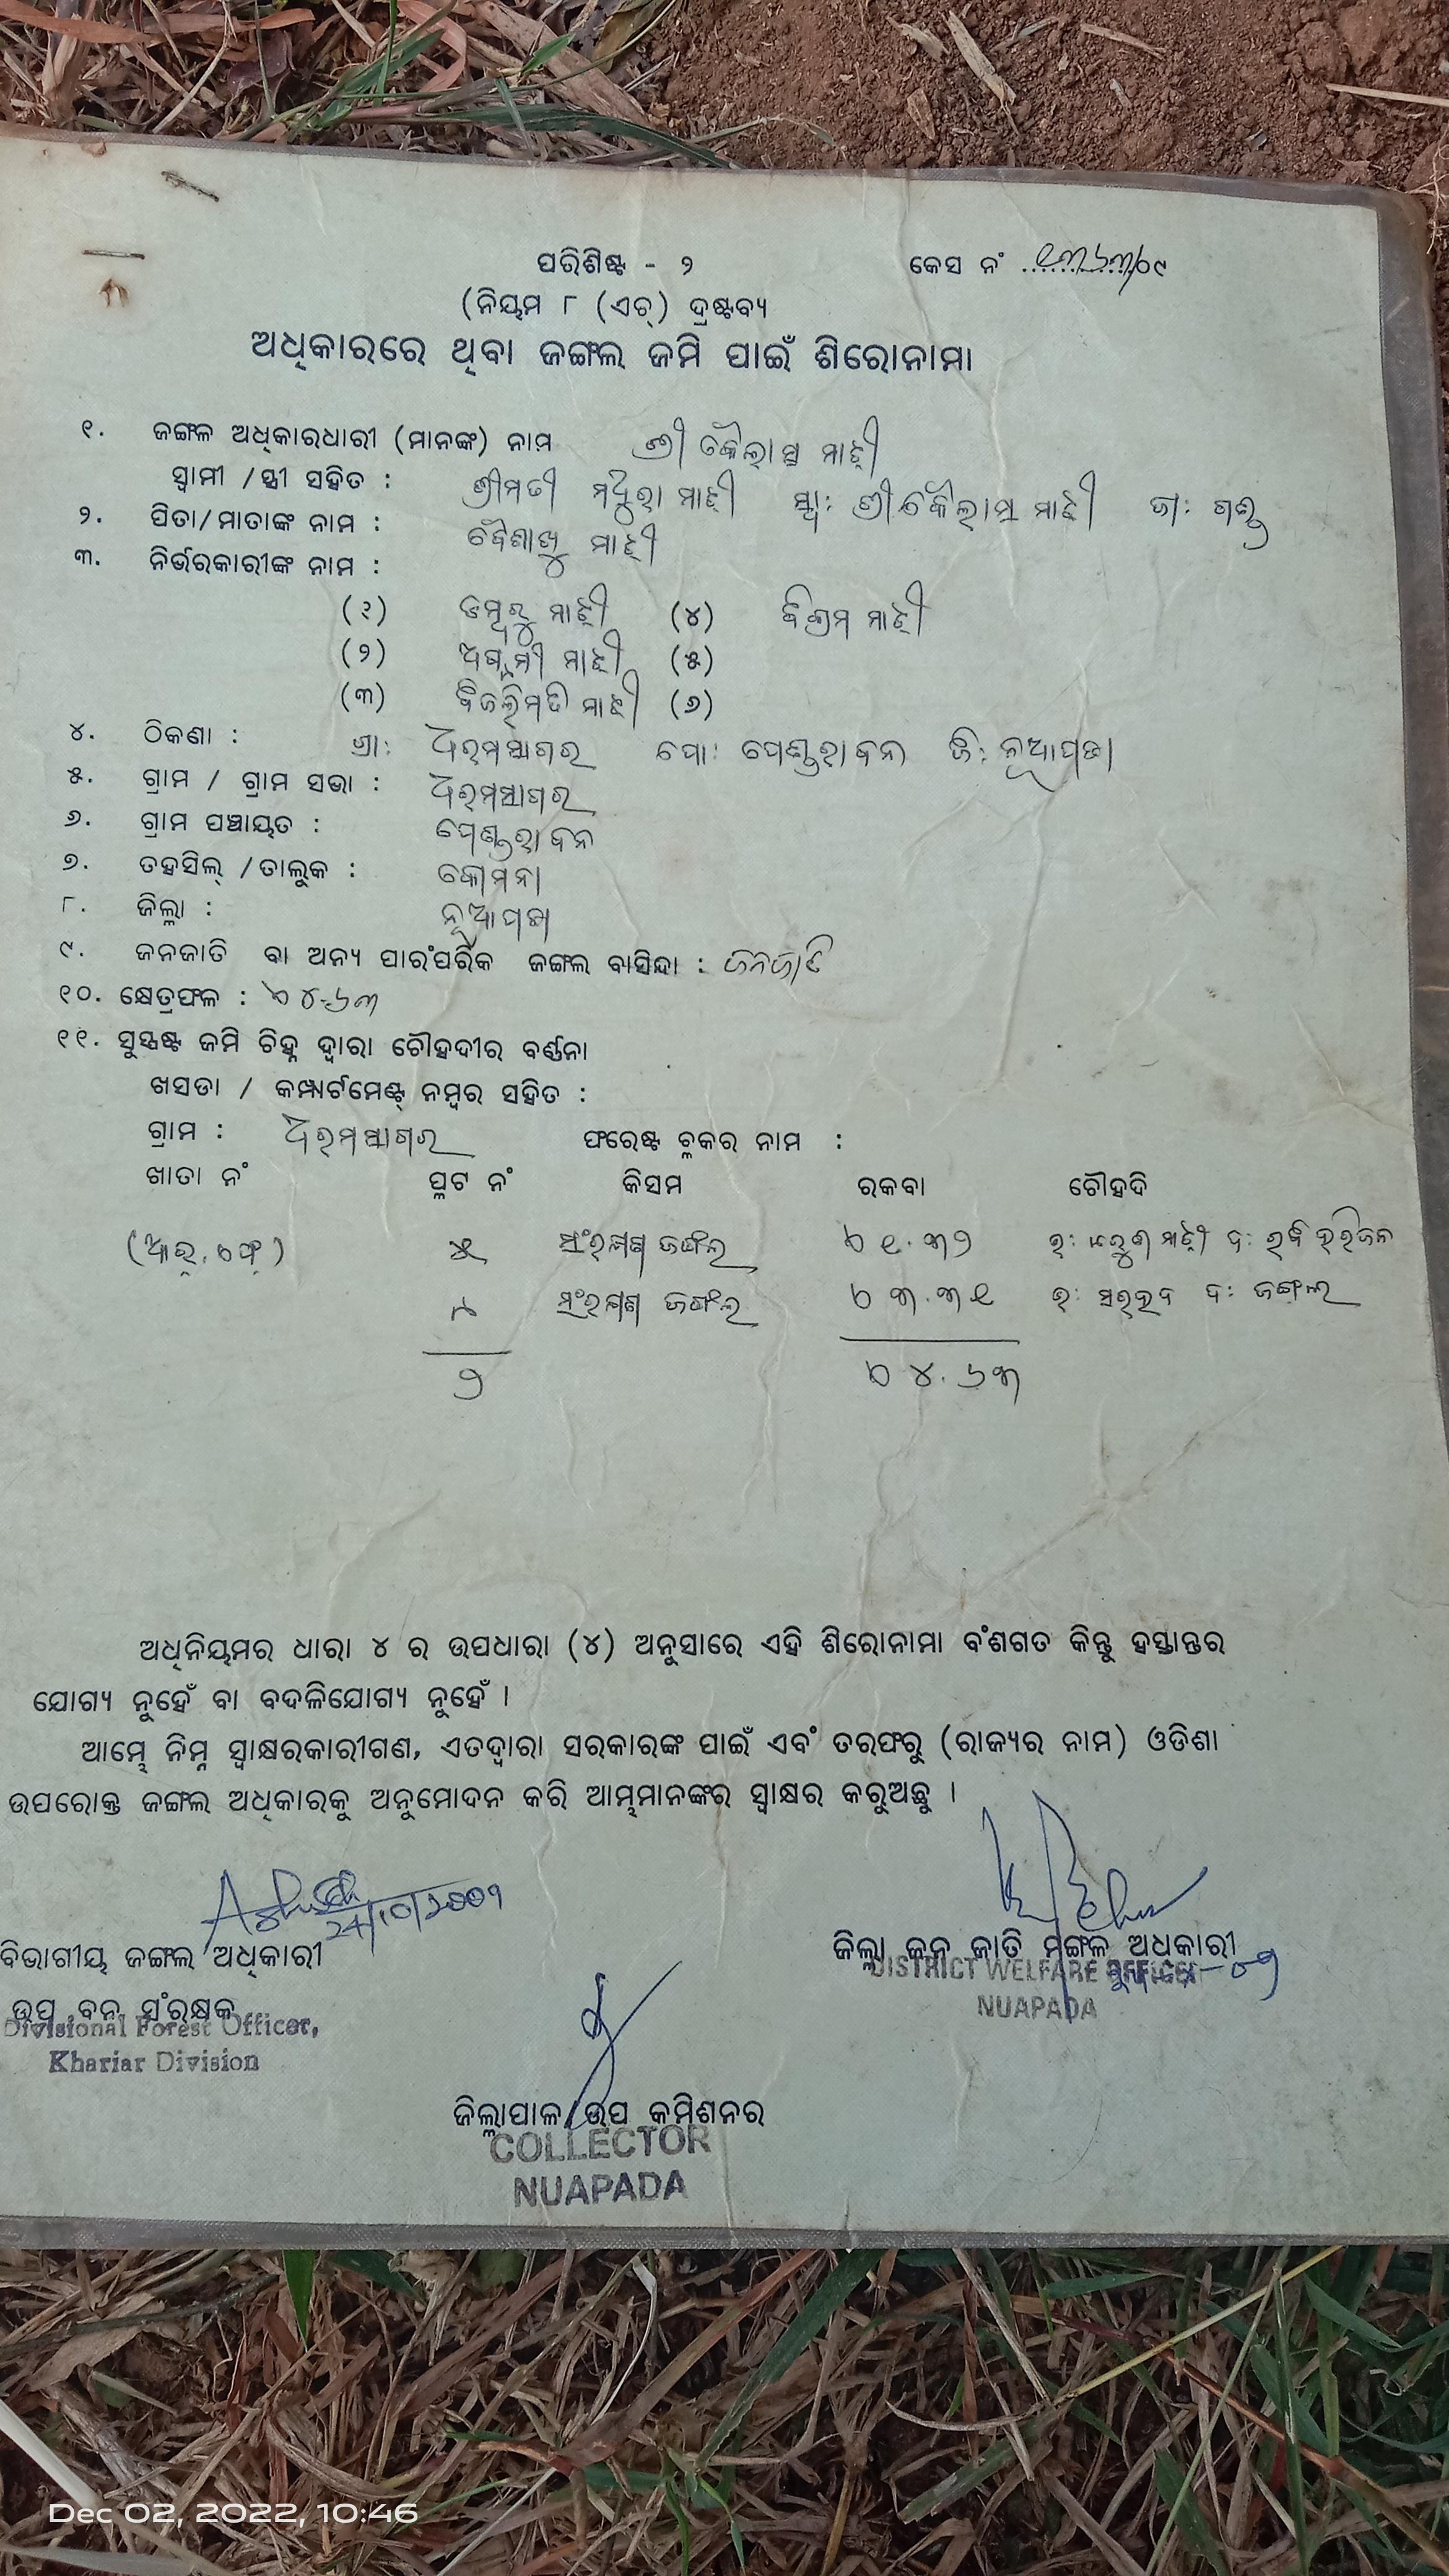 ପରିଶିଷ୍ଟ - ୨ କେସ ନଂ ୧୩୬୩/୦୯
(ନିୟମ ୮ (ଏଚ୍) ଦ୍ରଷ୍ଟବ୍ୟ
ଅଧିକାରରେ ଥିବା ଜଙ୍ଗଲ ଜମି ପାଇଁ ଶିରୋନାମା
୧. ଜଙ୍ଗଳ ଅଧିକାରଧାରୀ (ମାନଙ୍କ) ନାମ ଶ୍ରୀ କୈଳାସ ମାଝୀ
ସ୍ଵାମୀ /ସ୍ତ୍ରୀ ସହିତ : ଶ୍ରୀମତୀ ମଥୁରା ମାଝୀ ସ୍ଵା: ଶ୍ରୀ କୈଳାସ ମାଝୀ ଜା: ଗଣ୍ଡ
୨. ପିତା/ମାତାଙ୍କ ନାମ : ବୈଶାଖୁ ମାଝୀ
୩. ନିର୍ଭରକାରୀଙ୍କ ନାମ :
(୧) ଡମ୍ବରୁ ମାଝୀ (୪) ବିଶ୍ରାମ ମାଝୀ
(୨) ମାଝୀ (୫)
(୩) ବିଜଲିମତି ମାଝୀ (୬)
୪. ଠିକଣା : ଗ୍ରା: ଧରମସାଗର ପୋ: ପେଣ୍ଡରାବନ ଜି: ନୂଆପଡା
୫. ଗ୍ରାମ / ଗ୍ରାମ ସଭା : ଧରମସାଗର
୬. ଗ୍ରାମ ପଞ୍ଚାୟତ : ପେଣ୍ଡରାବନ
୭. ତହସିଲ୍ /ତାଲୁକ : କୋମନା
୮. ଜିଲ୍ଲା : ନୂଆପଡା
୯. ଜନଜାତି ବା ଅନ୍ୟ ପାରଂପରିକ ଜଙ୍ଗଲ ବାସିନ୍ଦା : ଜନଜାତି
୧୦. କ୍ଷେତ୍ରଫଳ : ଏ ୪.୬୩
୧୧. ସୁସ୍ପଷ୍ଟ ଜମି ଚିହ୍ନ ଦ୍ଵାରା ଚୌହଦୀର ବର୍ଣ୍ଣନା
ଖସଡା / କମ୍ପାର୍ଟମେଣ୍ଟ୍ ନମ୍ବର ସହିତ :
ଗ୍ରାମ : ଧରମସାଗର ଫରେଷ୍ଟ ବ୍ଲକର ନାମ :
ଖାତା ନଂ ପ୍ଲଟ ନଂ କିସମ ରକବା ଚୌହଦି
(ଆର୍.ଏଫ୍) ୫ ସଂରକ୍ଷଣ ଜଙ୍ଗଲ ଏ ୧.୩୨ ଉ: ମାଝୀ ଦ: ରବି ହରିଜନ
୮ ସଂରକ୍ଷଣ ଜଙ୍ଗଲ ଏ ୩.୩୧ ଉ: ସରହଦ ଦ: ଜଙ୍ଗଲ
୨ ଏ ୪.୬୩
ଅଧିନିୟମର ଧାରା ୪ ର ଉପଧାରା (୪) ଅନୁସାରେ ଏହି ଶିରୋନାମା ବଂଶଗତ କିନ୍ତୁ ହସ୍ତାନ୍ତର
ଯୋଗ୍ୟ ନୁହେଁ ବା ବଦଳିଯୋଗ୍ୟ ନୁହେଁ ।
ଆମ୍ଭେ ନିମ୍ନ ସ୍ଵାକ୍ଷରକାରୀଗଣ, ଏତଦ୍ଵାରା ସରକାରଙ୍କ ପାଇଁ ଏବଂ ତରଫରୁ (ରାଜ୍ୟର ନାମ) ଓଡିଶା
ଉପରୋକ୍ତ ଜଙ୍ଗଲ ଅଧିକାରକୁ ଅନୁମୋଦନ କରି ଆମ୍ଭମାନଙ୍କର ସ୍ଵାକ୍ଷର କରୁଅଛୁ ।
24/10/2009
ବିଭାଗୀୟ ଜଙ୍ଗଲ ଅଧିକାରୀ ଜିଲ୍ଲା ଜନ ଜାତି ମଙ୍ଗଳ ଅଧିକାରୀ
ଉପ ବନ ସଂରକ୍ଷକ DISTRICT WELFARE OFFICER
Divisional Forest Officer, NUAPADA
Khariar Division
ଜିଲ୍ଲାପାଳ/ଉପ କମିଶନର
COLLECTOR
NUAPADA
Dec 02, 2022, 10:46